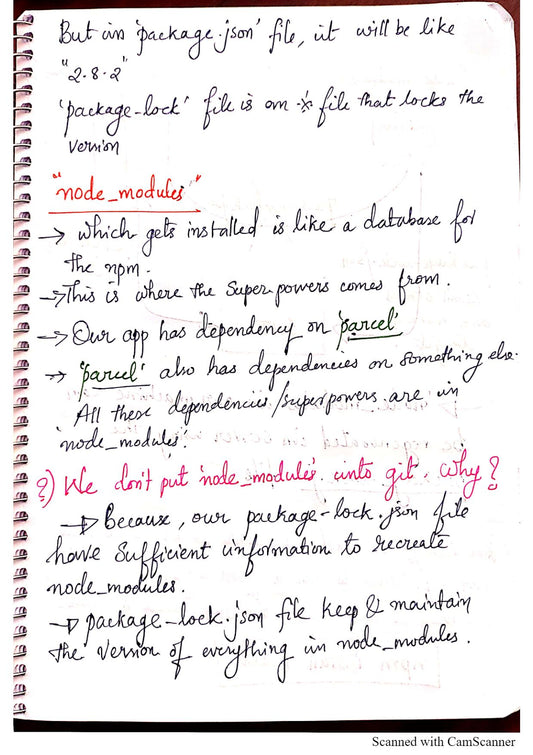 But in 'package.json' file, it will be like
"2.8.2"
'package-lock' file is an * file that locks the
version
"node_modules"
→ which gets installed is like a database for
the npm.
→ This is where the Superpowers comes from.
→ Our app has dependency on 'parcel'
→ 'parcel' also has dependencies on something else.
All these dependencies/superpowers are in
'node_modules'.
?) We don't put 'node_modules' into git. Why?
→ Because, our package-lock.json file
have sufficient information to recreate
node_modules.
→ package-lock.json file keep & maintain
the version of everything in node_modules.
Scanned with CamScanner